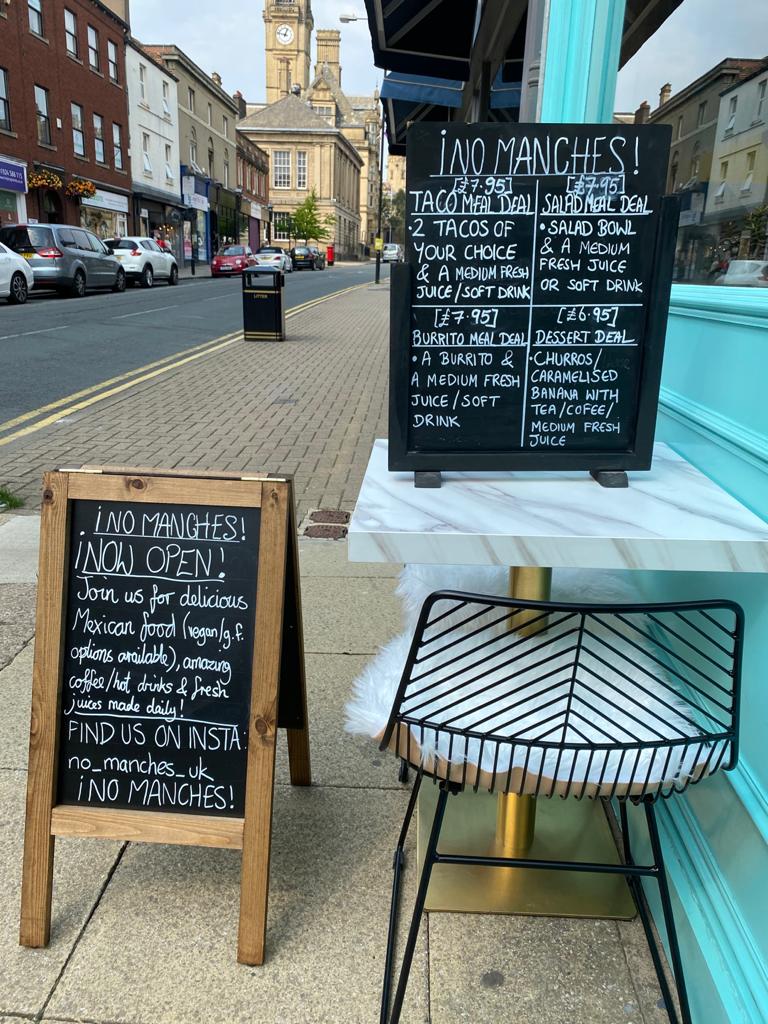 ¡NO MANCHES!
[£7.95]
TACO MEAL DEAL
·2 TACOS OF
YOUR CHOICE
& A MEDIUM FRESH
JUICE/SOFT DRINK
[£7.95]
SALAD MEAL DEAL
·SALAD BOWL
& A MEDIUM
FRESH JUICE
OR SOFT DRINK
[£7.95]
BURRITO MEAL DEAL
·A BURRITO &
A MEDIUM FRESH
JUICE/SOFT
DRINK
[£6.95]
DESSERT DEAL
·CHURROS/
CARAMELISED
BANANA WITH
TEA/COFEE/
MEDIUM FRESH
JUICE
¡NO MANCHES!
¡NOW OPEN!
Join us for delicious
Mexican food (vegan/g.f.
options available), amazing
coffee/hot drinks & fresh
juices made daily!
FIND US ON INSTA:
no_manches_uk
¡NO MANCHES!
LITTER